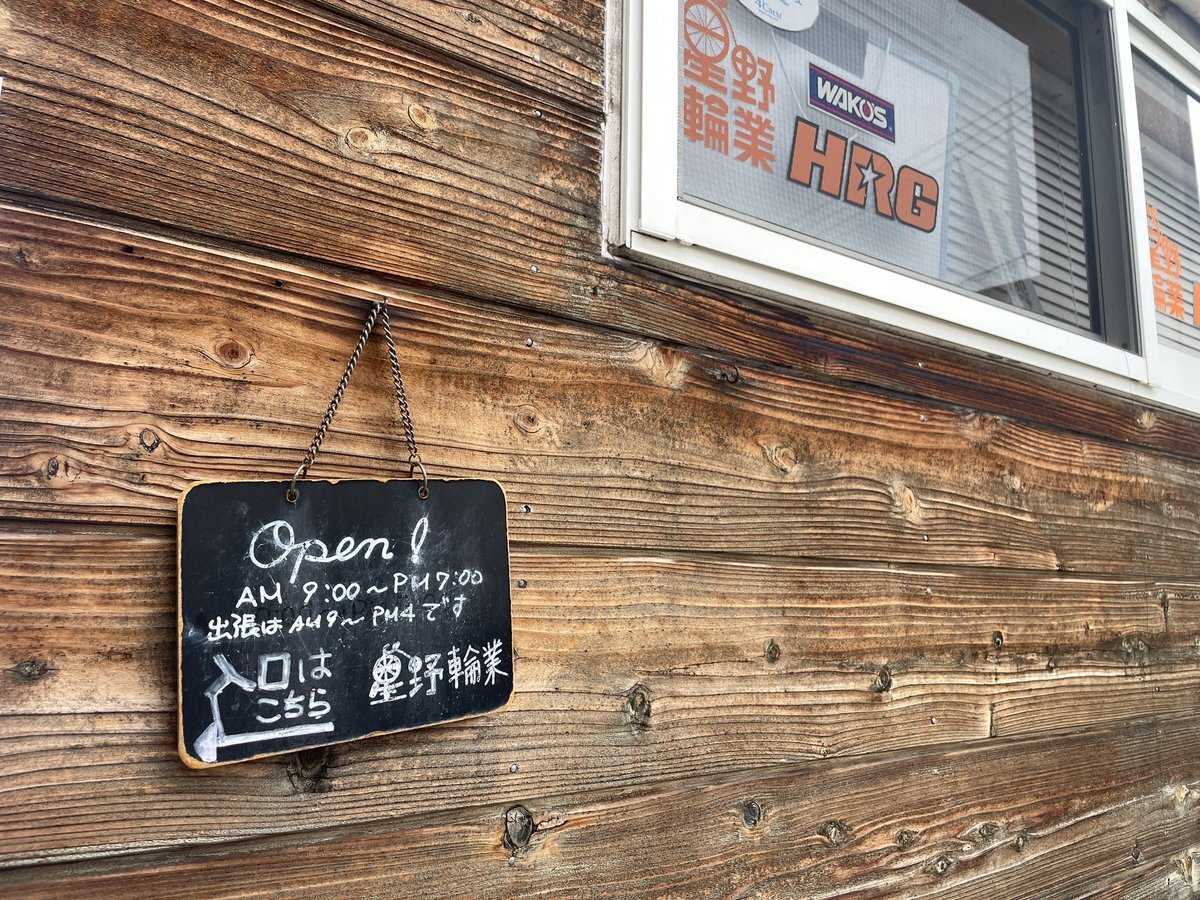 星野
輪業
WAKO'S
HRG
星野
輪業
Open!
AM 9:00～PM7:00
出張は AM9～PM4です
入口は
こちら
星野輪業